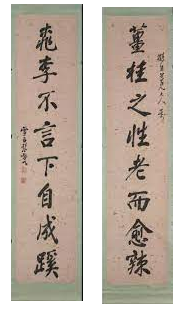 薑桂之性老而愈辣
桃李不言下自成蹊